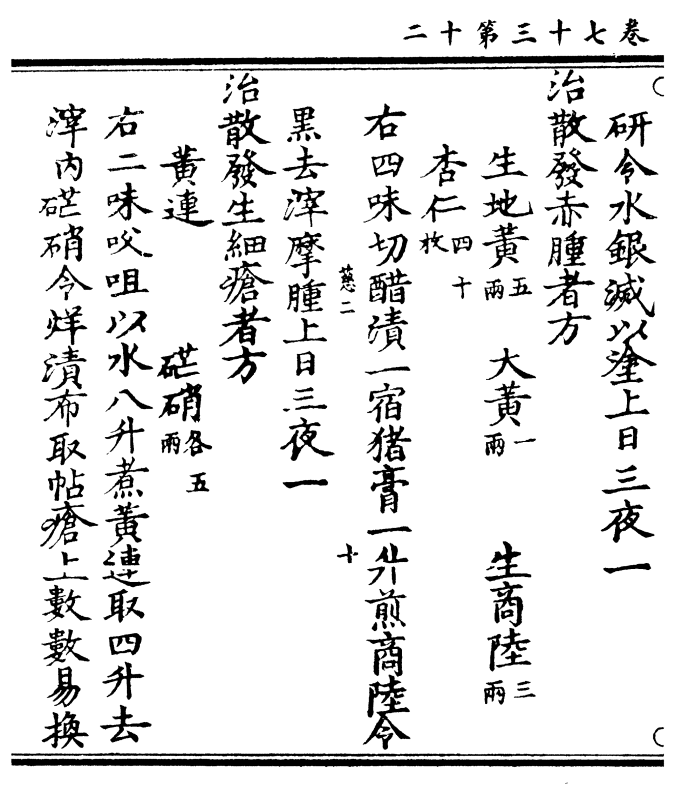 卷七十三第十二
研令水銀滅以塗上日三夜一
治散發赤腫者方
生地黃五兩　大黃一兩　生商陸三兩
杏仁四十枚
右四味切醋漬一宿猪膏一升煎商陸令
慈二　十
黑去滓摩腫上日三夜一
治散發生細瘡者方
黃連　硭硝各五兩
右二味㕮咀以水八升煮黃連取四升去
滓內硭硝令烊漬布取帖瘡上數數易換